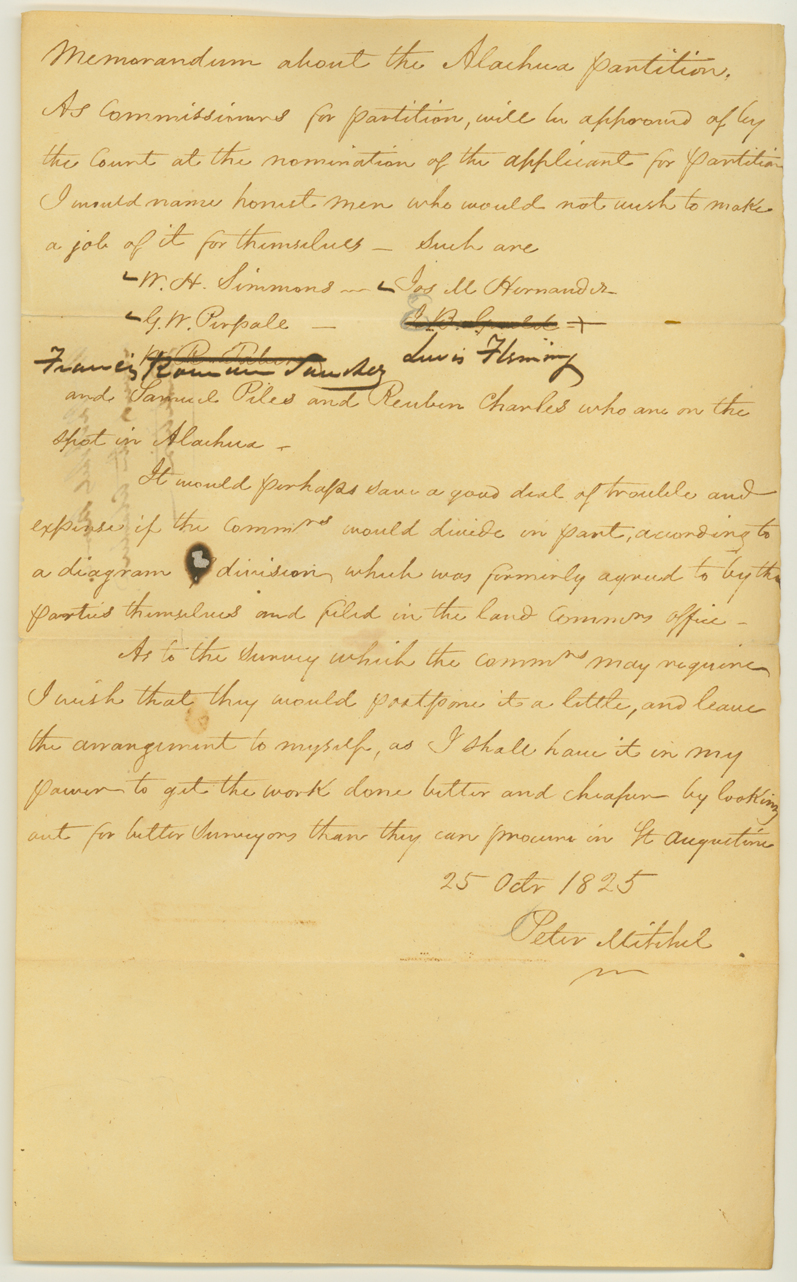 Memorandum about the Alachua partition.
As Commissioners for partition, will be approved of by
the Court at the nomination of the applicant for partition
I would name honest men who would not wish to make
a job of it for themselves — Such are
W. H. Simmons — Jos M Hernandez
G. W. Perpale —
Francis Roman Sanchez Lewis Fleming
and Samuel Piles and Reuben Charles who are on the
spot in Alachua —
It would perhaps save a good deal of trouble and
expense if the Commrs would divide in part, according to
a diagram division, which was formerly agreed to by the
parties themselves and filed in the land Commrs office —
As to the Survey which the Commrs may require
I wish that they would postpone it a little, and leave
the arrangement to myself, as I shall have it in my
power to get the work done better and cheaper by looking
out for better Surveyors than they can procure in St Augustine
25 Octr 1825
Peter Mitchel